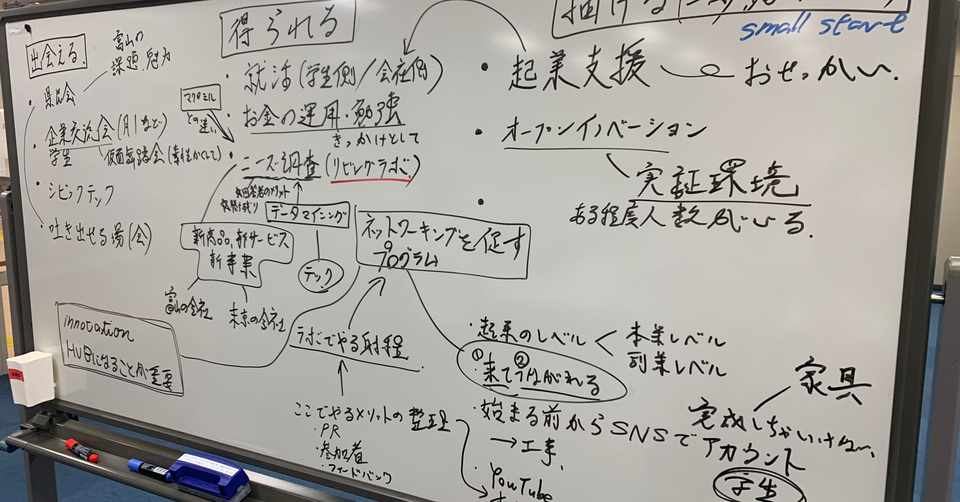 出会える。
富山の
課題、魅力
・県民会
・企業交流会(月1など)
学生
仮面舞踏会(素性かくして)
・シビックテック
・吐き出せる場(会)
得られる
・就活(学生側/会社側)
・お金の運用・勉強
きっかけとして
マクロミル
との違い
・ニーズ調査(リビングラボ)
データマイニング
テック
新商品、新サービス
新事業
富山の会社
東京の会社
innovation
HUBになることが重要
ネットワーキングを促す
プログラム
ラボでやる射程
ここでやるメリットの整理
・PR
・参加者
・フィードバック
small start
・起業支援
おせっかい。
・オープンイノベーション
実証環境
ある程度人数がいる。
・起業のレベル
本業レベル
副業レベル
①
②
・来てつながれる
・始まる前からSNSで
アカウント
→工事、
・YouTube
家具
完成しちゃいけない
学生